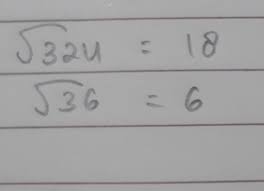 √324 = 18
√36 = 6